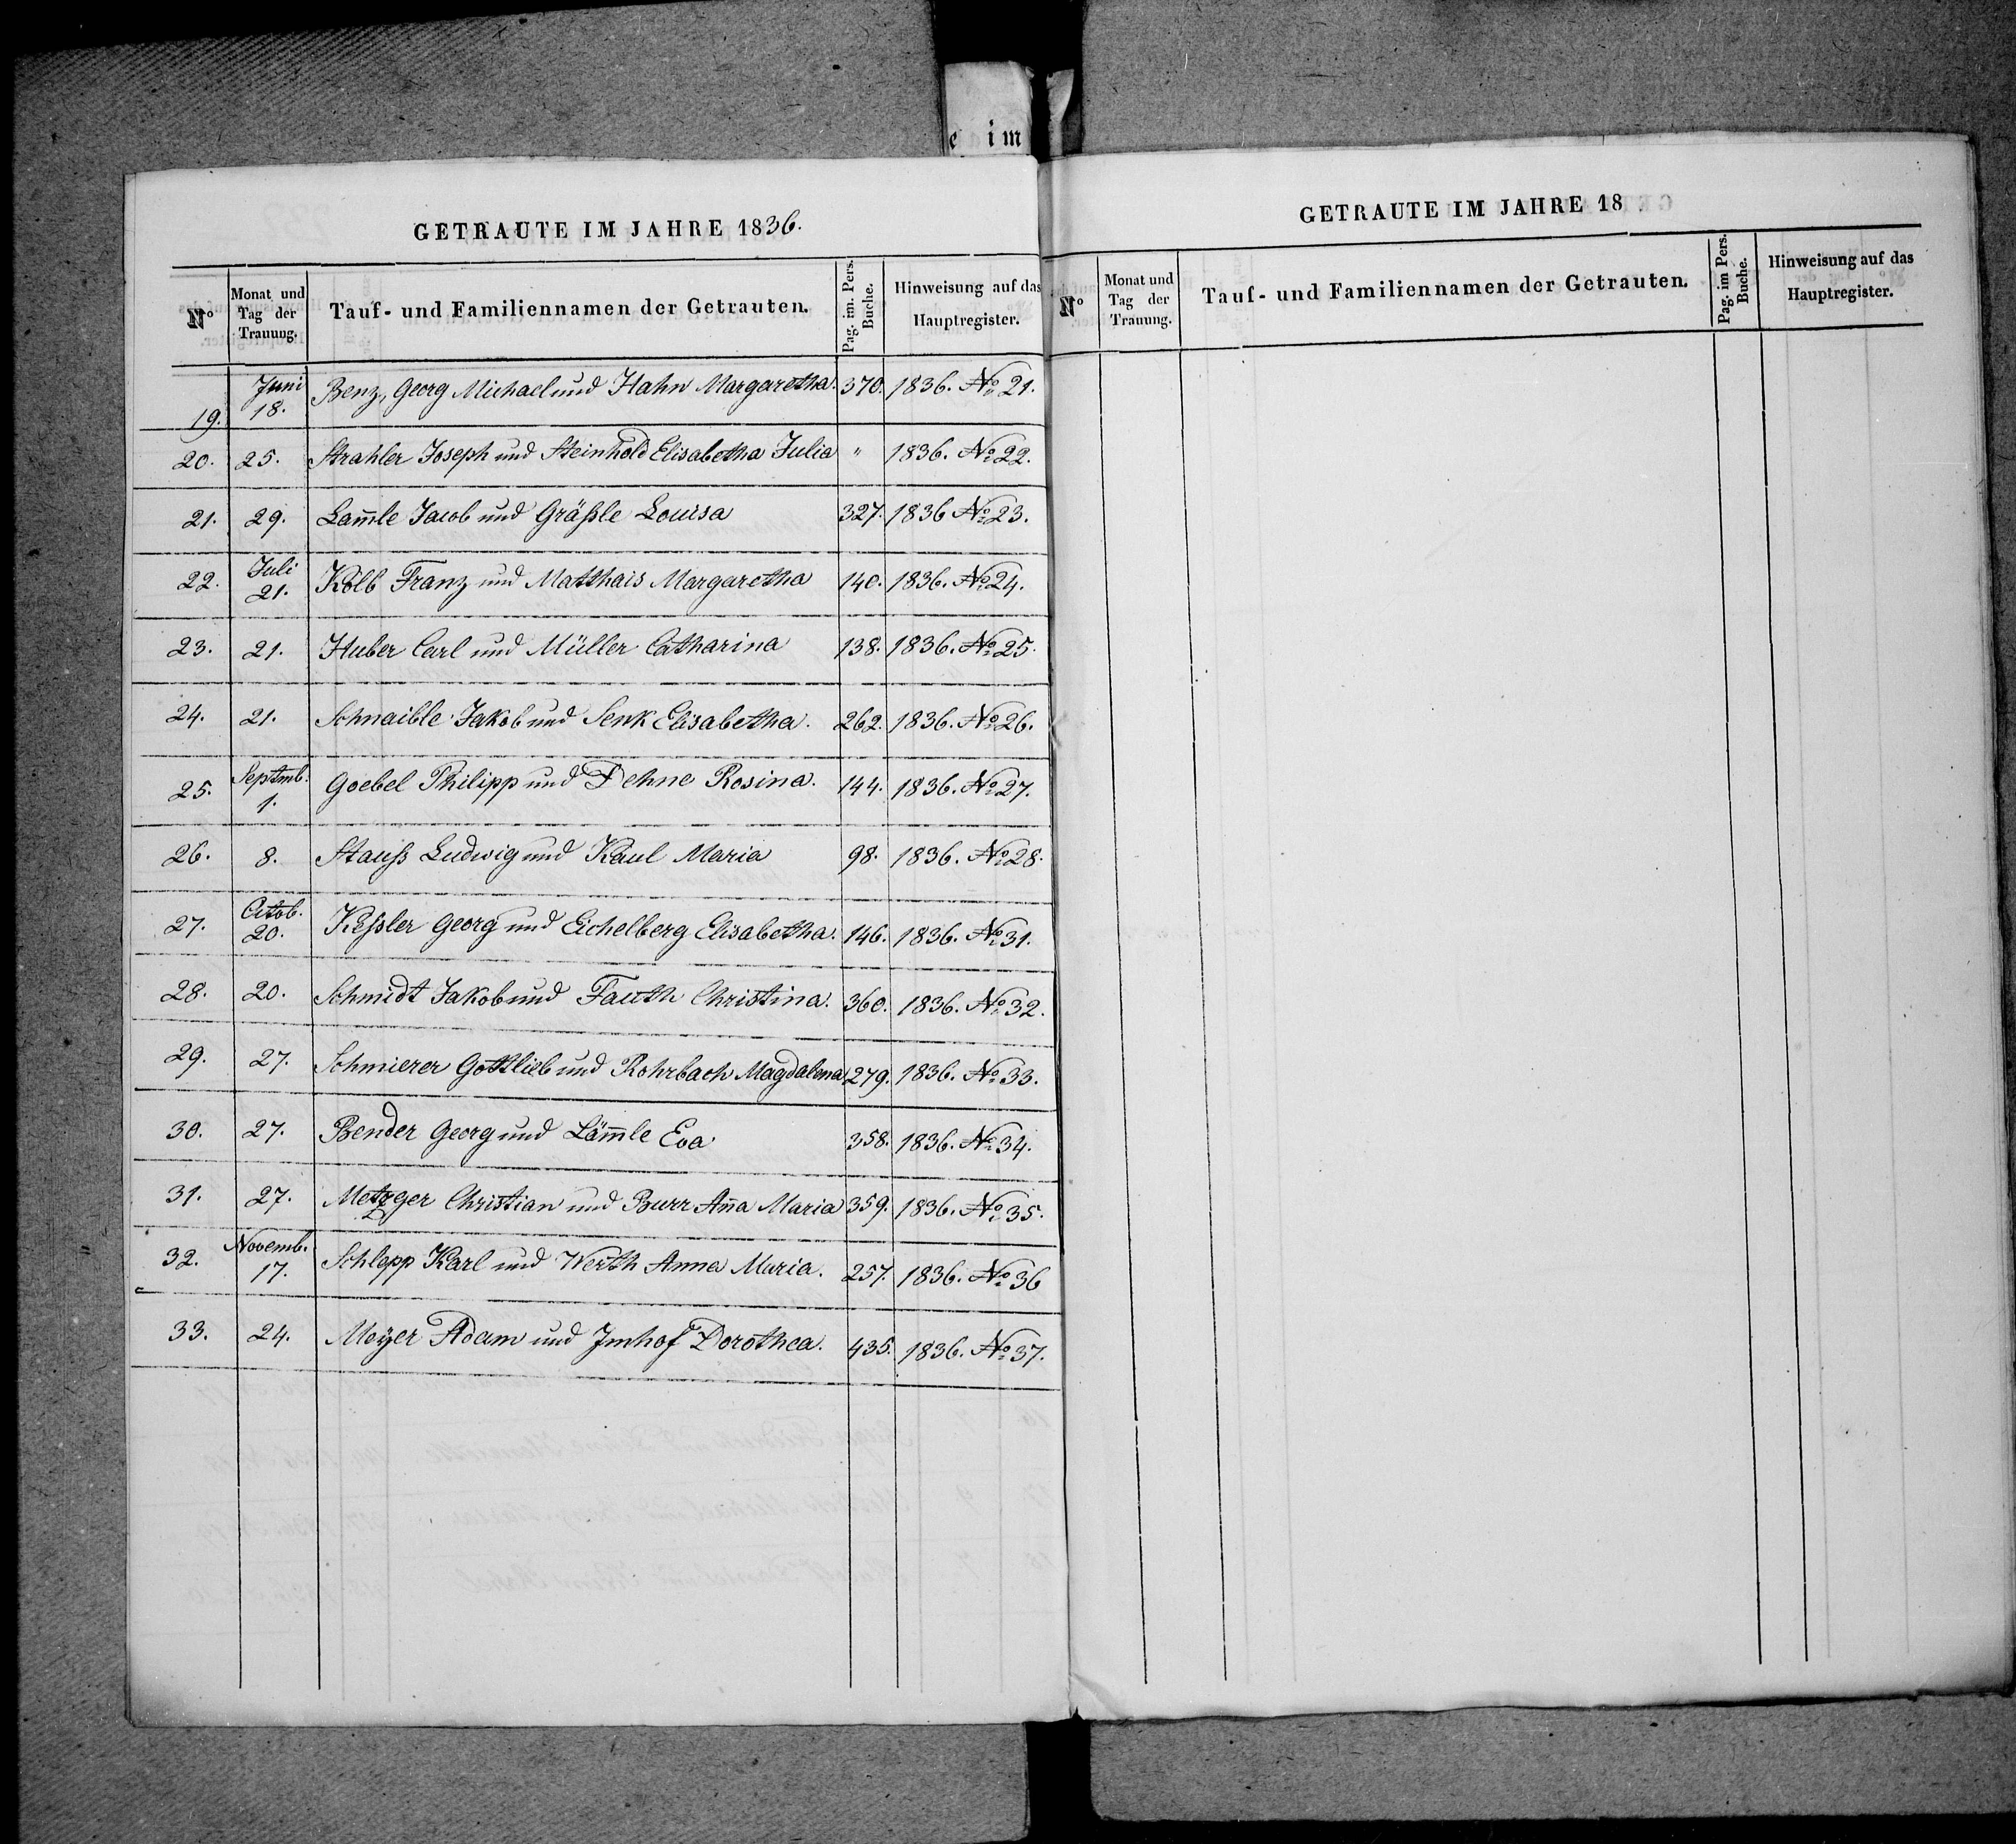 e im
GETRAUTE IM JAHRE 1836.
Nº
Monat und Tag der Trauung.
Tauf- und Familiennamen der Getrauten.
Pag. im. Pers. Buche.
Hinweisung auf das Hauptregister.
19. Juni 18. Benz, Georg Michael und Hahn Margaretha. 370. 1836. Nº 21.
20. 25. Strahler Joseph und Steinhold Elisabetha Julia " 1836. Nº 22.
21. 29. Lam̄le Jacob und Gräßle Louisa 327. 1836 Nº 23.
22. Juli 21. Kolb Franz und Matthais Margaretha 140. 1836. Nº 24.
23. 21. Huber Carl und Müller Catharina 138. 1836. Nº 25.
24. 21. Schnaible Jakob und Senk Elisabetha. 262. 1836. Nº 26.
25. Septmb. 1. Goebel Philipp und Dehne Rosina. 144. 1836. Nº 27.
26. 8. Stauß Ludwig und Kaul Maria 98. 1836. Nº 28.
27. Octob. 20. Keßler Georg und Eichelberg Elisabetha. 146. 1836. Nº 31.
28. 20. Schmidt Jakob und Fauth Christina. 360. 1836. Nº 32.
29. 27. Schmierer Gottlieb und Rohrbach Magdalena 279. 1836. Nº 33.
30. 27. Bender Georg und Läm̄le Eva 358. 1836. Nº 34.
31. 27. Metzger Christian und Burr An̄a Maria 359. 1836. Nº 35.
32. Novemb. 17. Schlepp Karl und Werth Anna Maria. 257. 1836. Nº 36
33. 24. Meÿer Adam und Imhof Dorothea. 435. 1836. Nº 37.
GETRAUTE IM JAHRE 18
Nº
Monat und Tag der Trauung.
Tauf- und Familiennamen der Getrauten.
Pag. im Pers. Buche.
Hinweisung auf das Hauptregister.